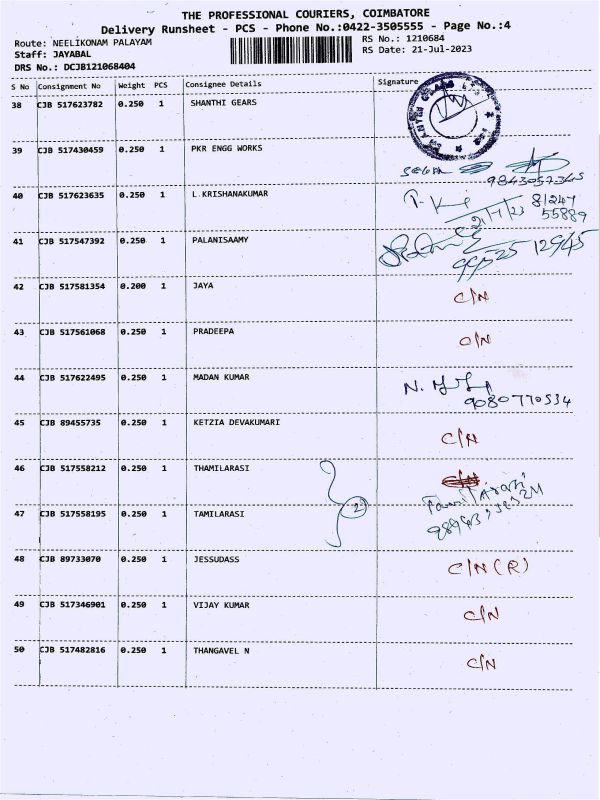 THE PROFESSIONAL COURIERS, COIMBATORE
Delivery Runsheet - PCS - Phone No.:0422-3505555 - Page No.:4
Route: NEELIKONAM PALAYAM
RS No.: 1210684
Staff: JAYABAL
RS Date: 21-Jul-2023
DRS No.: DCJB121068404
S No Consignment No Weight PCS Consignee Details Signature
38 CJB 517623782 0.250 1 SHANTHI GEARS
39 CJB 517430459 0.250 1 PKR ENGG WORKS
9843057345
40 CJB 517623635 0.250 1 L.KRISHANAKUMAR 81247
21/7/23 55889
41 CJB 517547392 0.250 1 PALANISAAMY
42 CJB 517581354 0.200 1 JAYA C/N
43 CJB 517561068 0.250 1 PRADEEPA C/N
44 CJB 517622495 0.250 1 MADAN KUMAR
9080770534
45 CJB 89455735 0.250 1 KETZIA DEVAKUMARI C/N
46 CJB 517558212 0.250 1 THAMILARASI
2
47 CJB 517558195 0.250 1 TAMILARASI
48 CJB 89733070 0.250 1 JESSUDASS C/N (R)
49 CJB 517346901 0.250 1 VIJAY KUMAR C/N
50 CJB 517482816 0.250 1 THANGAVEL N C/N